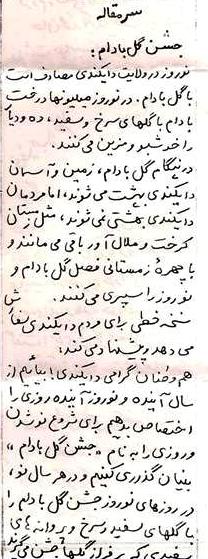 سرمقاله
جشن گل بادام:
نوروز در ولایت دایکندی مصادف است
با گل بادام. در نوروز میلیونها درخت
بادام با گلهای سرخ و سفید، ده و دیار
را خوشبو و مزین می کنند.
در هنگام گل بادام، زمین و آسمان
دایکندی بهشت می شوند، اما مردمان
دایکندی بهشتی نمی شوند، مثل زمستان
کرخت و ملال آور باقی می مانند و
با چهرهٔ زمستانی فصل گل بادام و
نوروز را سپری می کنند.
نسخه خطی برای مردم دایکندی
می دهد و پیشنهاد می کند:
هم وطنان گرامی دایکندی! بیائیم از
سال آینده و نوروز آینده روزی را
اختصاص بدهیم برای شروع نو شدن
و روزی را به نام «جشن گل بادام»
بنیان گذاری کنیم و در هر سال نو،
در روزهای نوروز جشن گل بادام را
با گلهای سفید و سرخ و پروانه های
سفیدی که بر فراز گلها جشن می گیرند